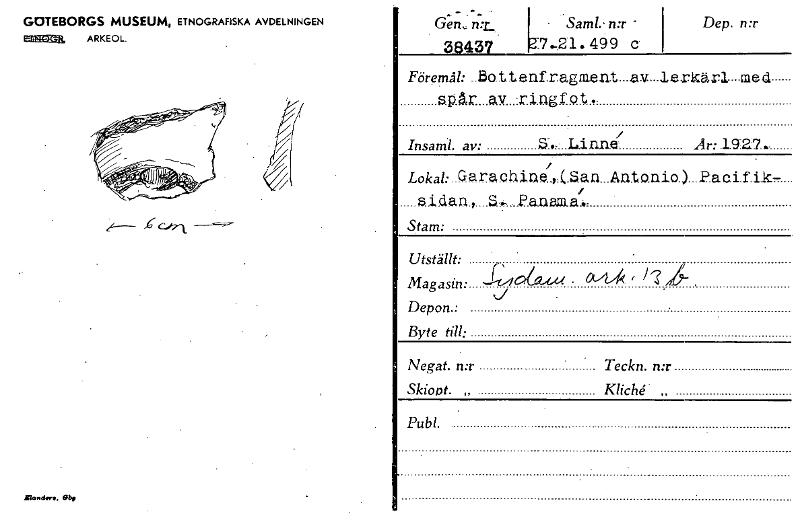 GÖTEBORGS MUSEUM, ETNOGRAFISKA AVDELNINGEN
ETNOGR. ARKEOL.
6 cm
Elanders, Gbg
Gen. n:r Saml. n:r Dep. n:r
38437 27.21.499 c
Föremål: Bottenfragment av lerkärl med
spår av ringfot.
Insaml. av: S. Linné År: 1927.
Lokal: Garachiné, (San Antonio) Pacifik-
sidan, S. Panamá.
Stam:
Utställt:
Magasin: Sydam. ark. 13 b.
Depon.:
Byte till:
Negat. n:r Teckn. n:r
Skiopt. „ Kliché „
Publ.